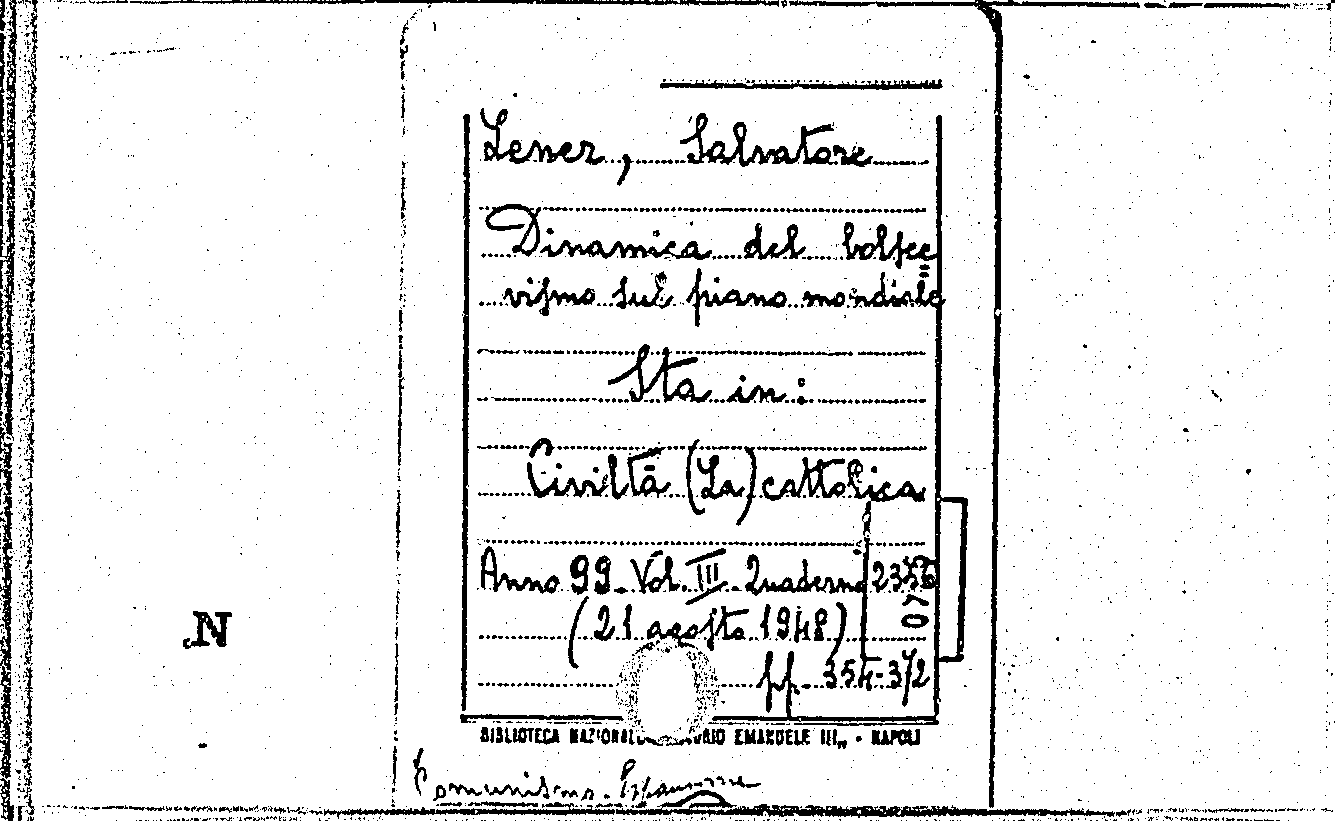 Lener, Salvatore
Dinamica del bolsce=
vismo sul piano mondiale
Sta in:
Civiltà (La) cattolica
Anno 99. Vol. III. Quaderno
(21 agosto 1948)
pp. 354-372
BIBLIOTECA NAZIONALE EMANUELE III„ - NAPOLI
Comunismo. Espansione
N